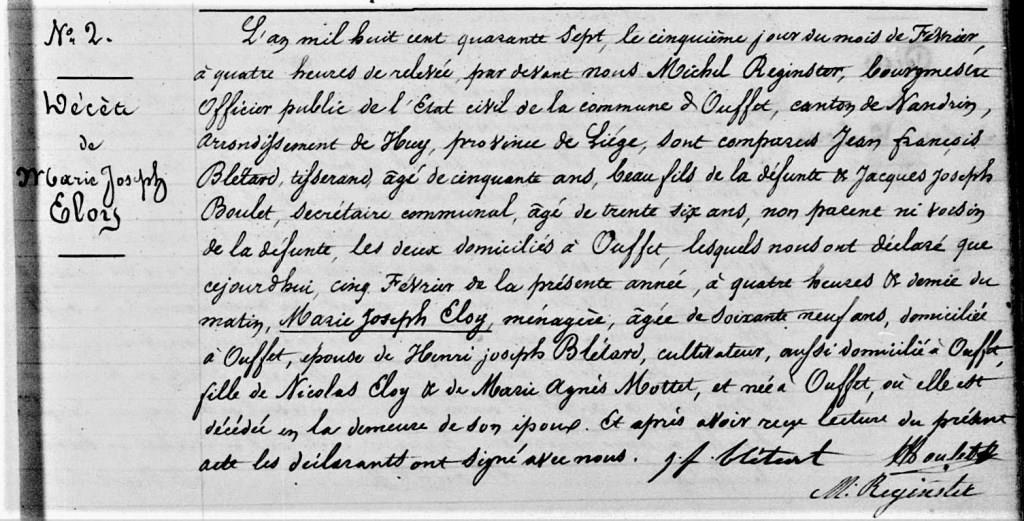 No. 2.
Décès
de
Marie Joseph
Eloy
L'an mil huit cent quarante sept, le cinquième jour du mois de Février,
à quatre heures de relevée, par devant nous Michel Reginster, bourgmestre
Officier public de l'Etat civil de la commune d'Ouffet, canton de Nandrin,
arrondissement de Huy, province de Liége, sont comparus Jean françois
Blétard, tisserand, âgé de cinquante ans, beau fils de la défunte & Jacques Joseph
Boulet, secrétaire communal, âgé de trente six ans, non parent ni voisin
de la défunte, les deux domiciliés à Ouffet, lesquels nous ont déclaré que
cejourdhui, cinq Février de la présente année, à quatre heures & demie du
matin, Marie Joseph Eloy, ménagère, âgée de soixante neuf ans, domiciliée
à Ouffet, épouse de Henri joseph Blétard, cultivateur, aussi domicilié à Ouffet,
fille de Nicolas Eloy & de Marie Agnès Mottet, et née à Ouffet, où elle est
décédée en la demeure de son époux. Et après avoir reçu lecture du présent
acte les déclarants ont signé avec nous. j. f. blétart JJBoulet
M. Reginster